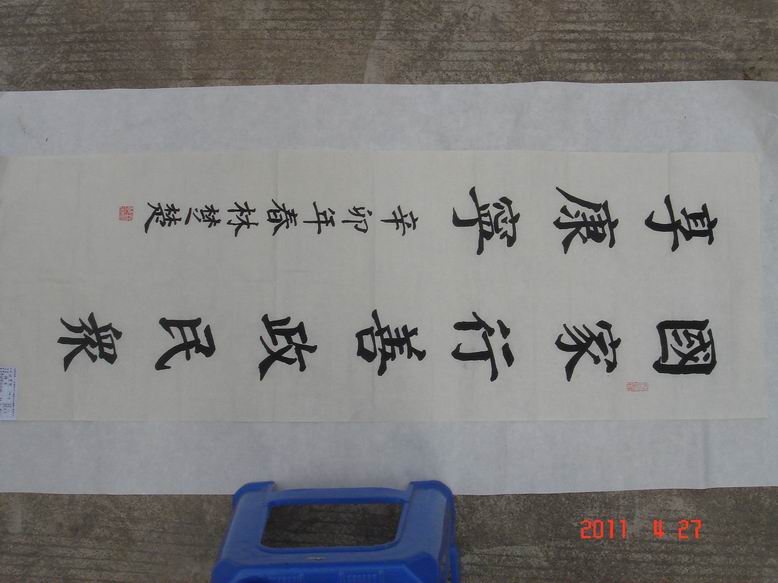 國家行善政民眾
享康寧
辛卯年春林楚楚
2011 4 27